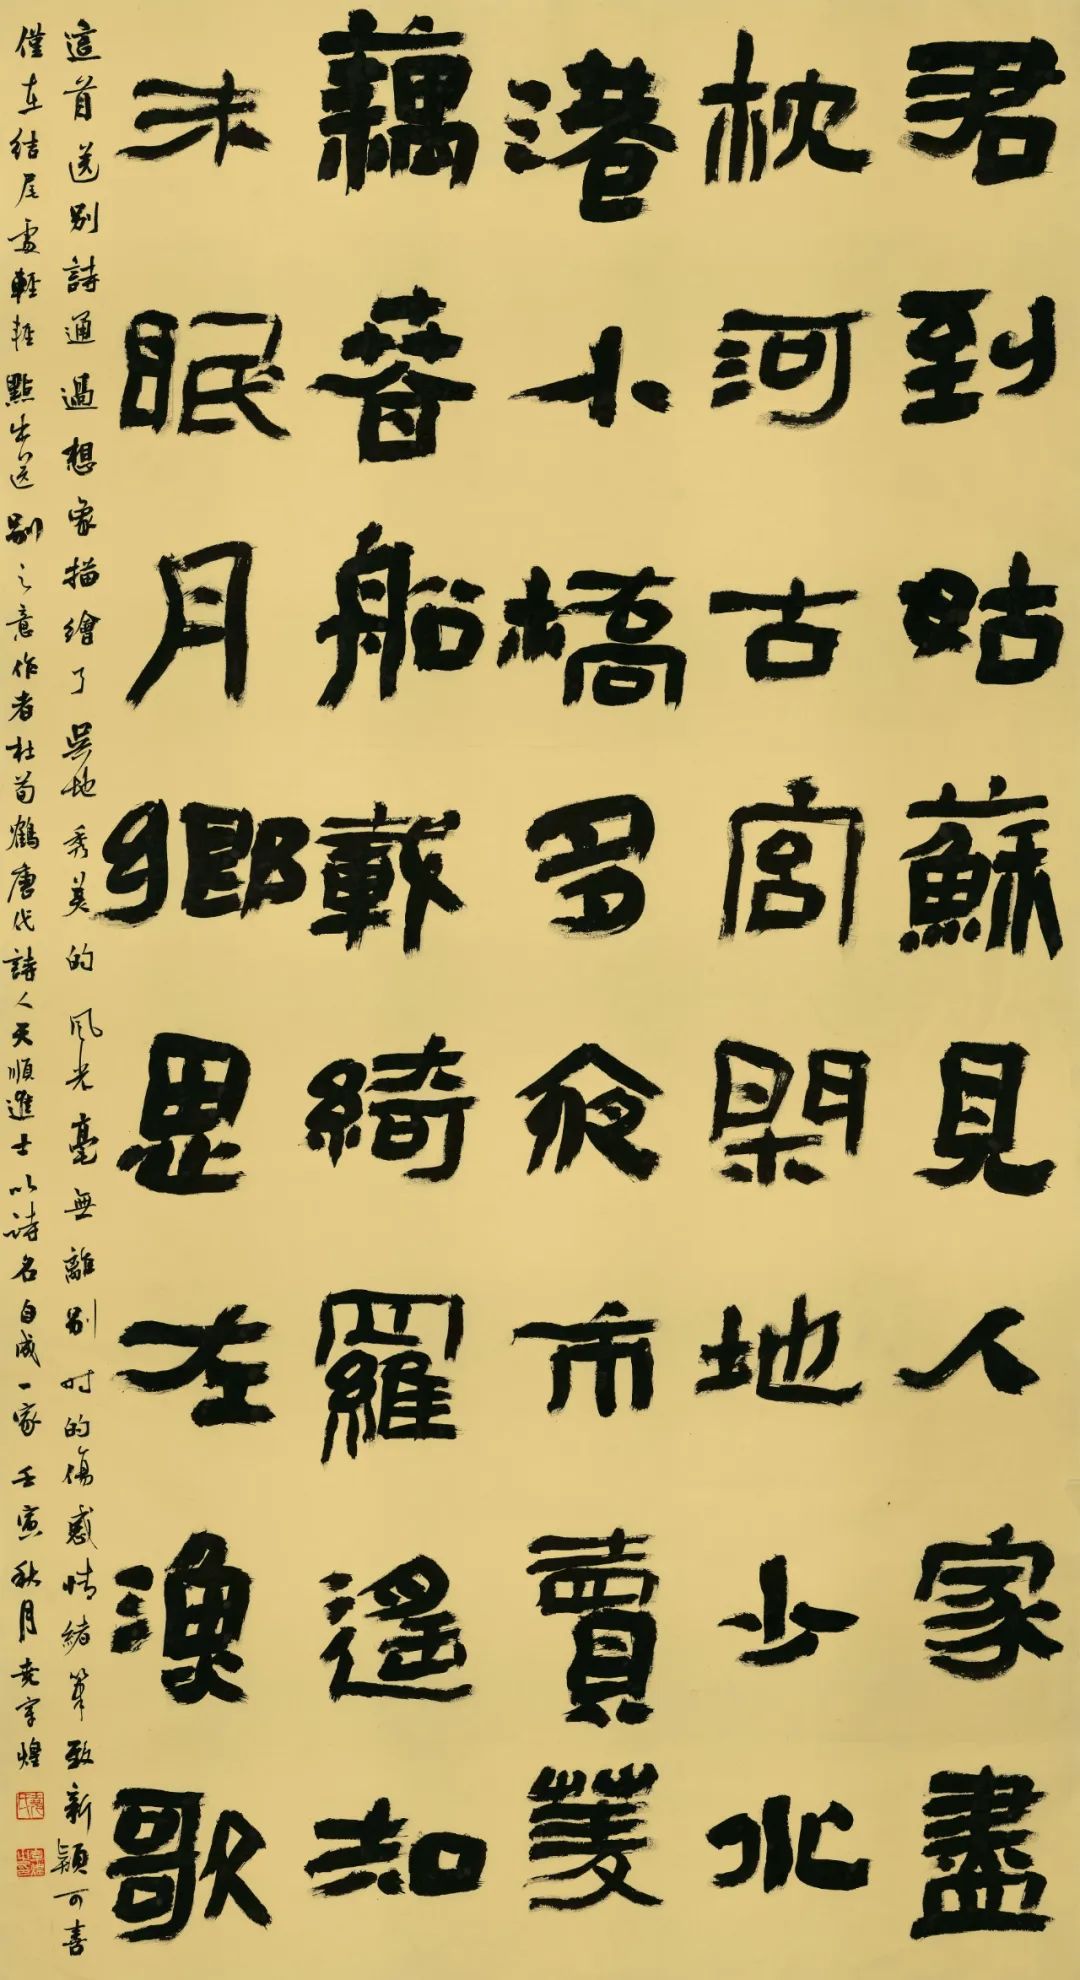 君到姑蘇見人家盡
枕河古宮閑地少水
港小橋多夜市賣菱
藕春船載綺羅遙知
未眠月鄉思在漁歌
這首送別詩通過想象描繪了吳地秀美的风光毫無離別时的傷感情緒筆致新穎可喜
僅在結尾處輕輕點出送別之意作者杜荀鶴唐代詩人天順進士以詩名自成一家壬寅秋月